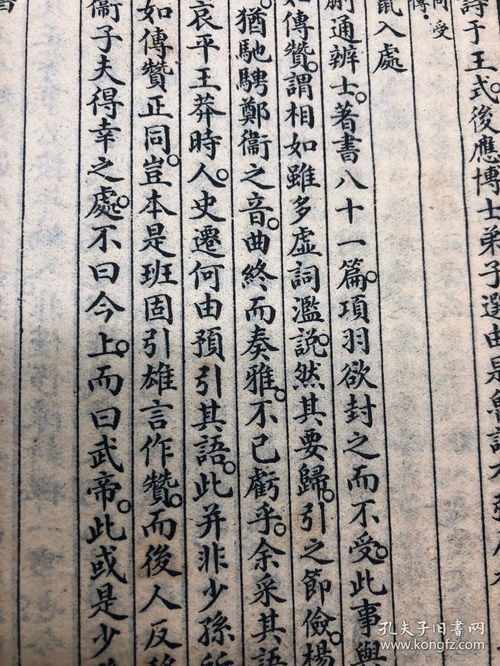 詩于王式。後應博士弟子選。由是
鼠入處
蒯通辨士。著書八十一篇。項羽欲封之而不受。此事與
如傳贊。謂相如雖多虛詞濫說。然其要歸。引之節儉。楊
猶馳騁鄭衞之音。曲終而奏雅。不已虧乎。余采其語
哀平王莽時人。史遷何由預引其語。此并非少孫所
如傳贊正同。豈本是班固引雄言作贊。而後人反
衞子夫得幸之處。不曰今上。而曰武帝。此或是少
孔夫子旧书网
www.kongfz.com